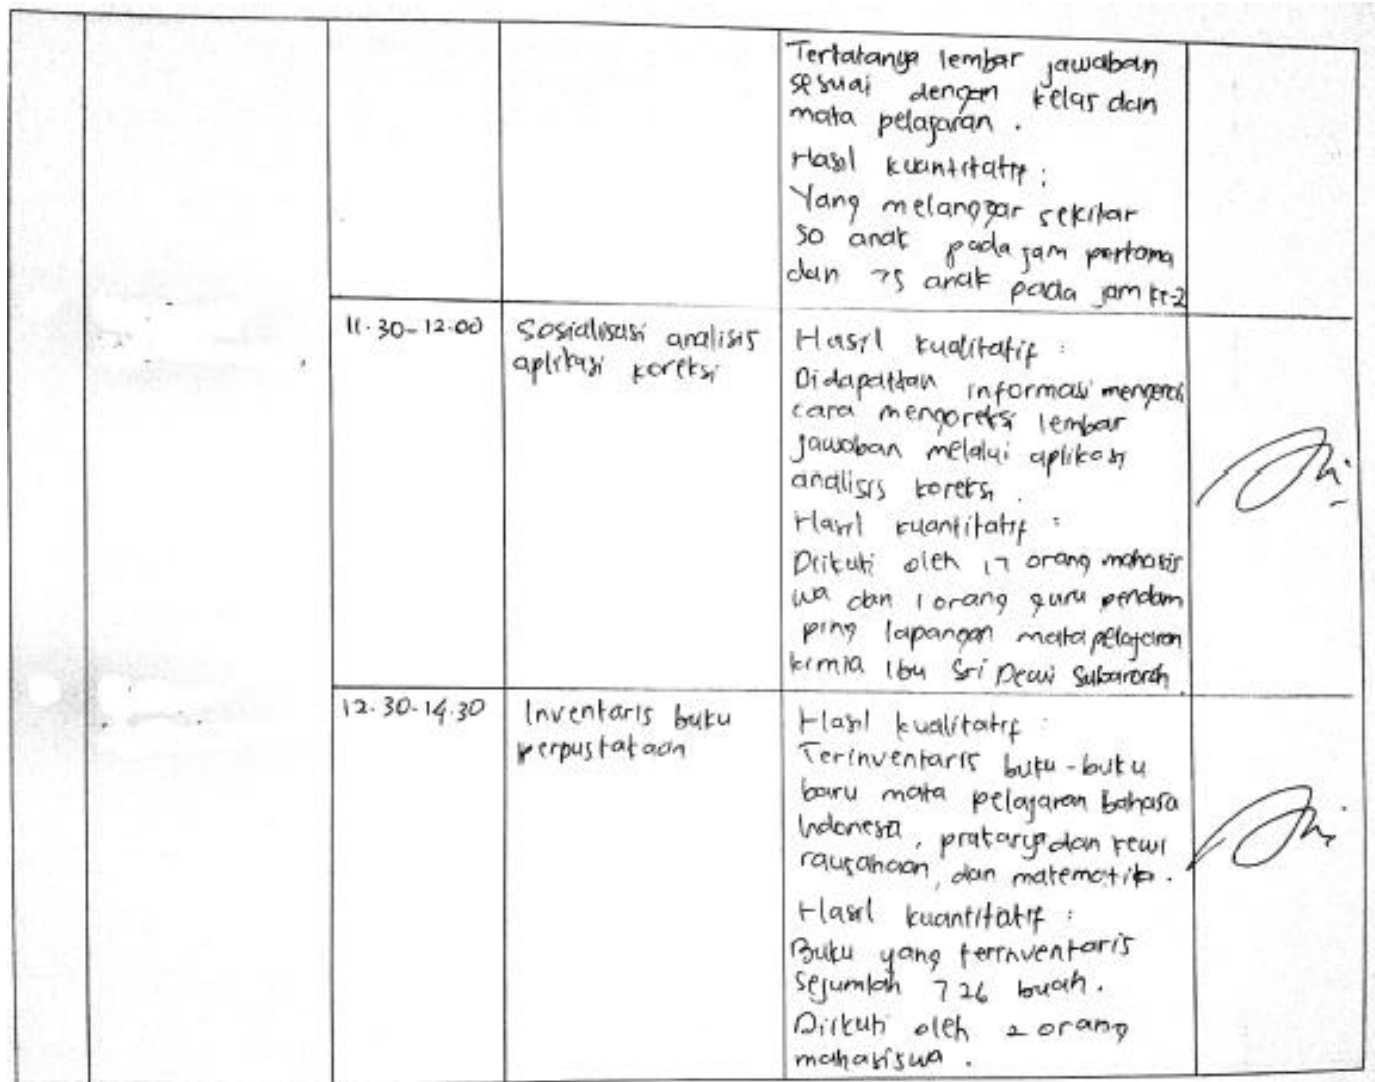 Tertatanya lembar jawaban
sesuai dengan kelas dan
mata pelajaran.
Hasil kuantitatif :
Yang melanggar sekitar
50 anak pada jam pertama
dan 75 anak pada jam ke-2
11.30-12.00
Sosialisasi analisis
aplikasi koreksi
Hasil kualitatif :
Didapatkan informasi mengenai
cara mengoreksi lembar
jawaban melalui aplikasi
analisis koreksi.
Hasil kuantitatif :
Diikuti oleh 17 orang mahasis
wa dan 1 orang guru pendam
ping lapangan mata pelajaran
kimia Ibu Sri Dewi
12.30-14.30
Inventaris buku
perpustakaan
Hasil kualitatif :
Terinventaris buku-buku
baru mata pelajaran bahasa
Indonesia, prakarya dan kewi
rausahaan, dan matematika.
Hasil kuantitatif :
Buku yang terinventaris
sejumlah 726 buah.
Diikuti oleh 2 orang
mahasiswa.